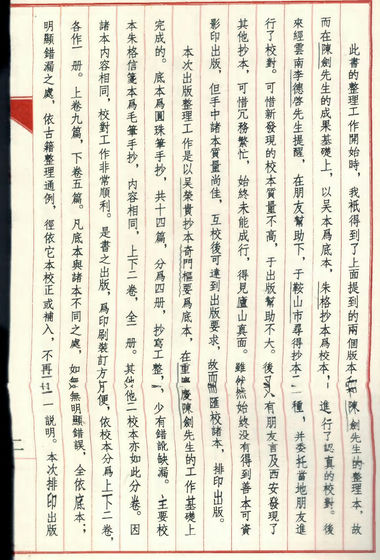 此書的整理工作開始時，我衹得到了上面提到的兩個版本和陳劍先生的整理本，故
而在陳劍先生的成果基礎上，以吴本爲底本，朱格抄本爲校本，進行了認真的校對。後
來經雲南李德啓先生提醒，在朋友幫助下，于鞍山市尋得抄本二種，并委托當地朋友進
行了校對。可惜新發現的校本質量不高，于出版幫助不大。後又有朋友言及西安發現了
其他抄本，可惜冗務繁忙，始終未能成行，得見廬山真面。雖然始終没有得到善本可資
影印出版，但手中諸本質量尚佳，互校後可達到出版要求，故而匯校諸本，排印出版。
本次出版整理工作是以吴榮貴抄本奇門樞要爲底本，在重慶陳劍先生的工作基礎上
完成的。底本爲圓珠筆手抄，共十四篇，分爲四册，抄寫工整，少有錯訛缺漏。主要校
本朱格信箋本爲毛筆手抄，内容相同，上下二卷，全一册。其他二校本亦如此分卷。因
諸本内容相同，校對工作非常順利。是書之出版，爲印刷裝訂方便，依校本分爲上下二卷，
各作一册。上卷九篇，下卷五篇。凡底本與諸本不同之處，如無明顯錯誤，全依底本；
明顯錯漏之處，依古籍整理通例，徑依它本校正或補入，不再一一説明。本次排印出版
二